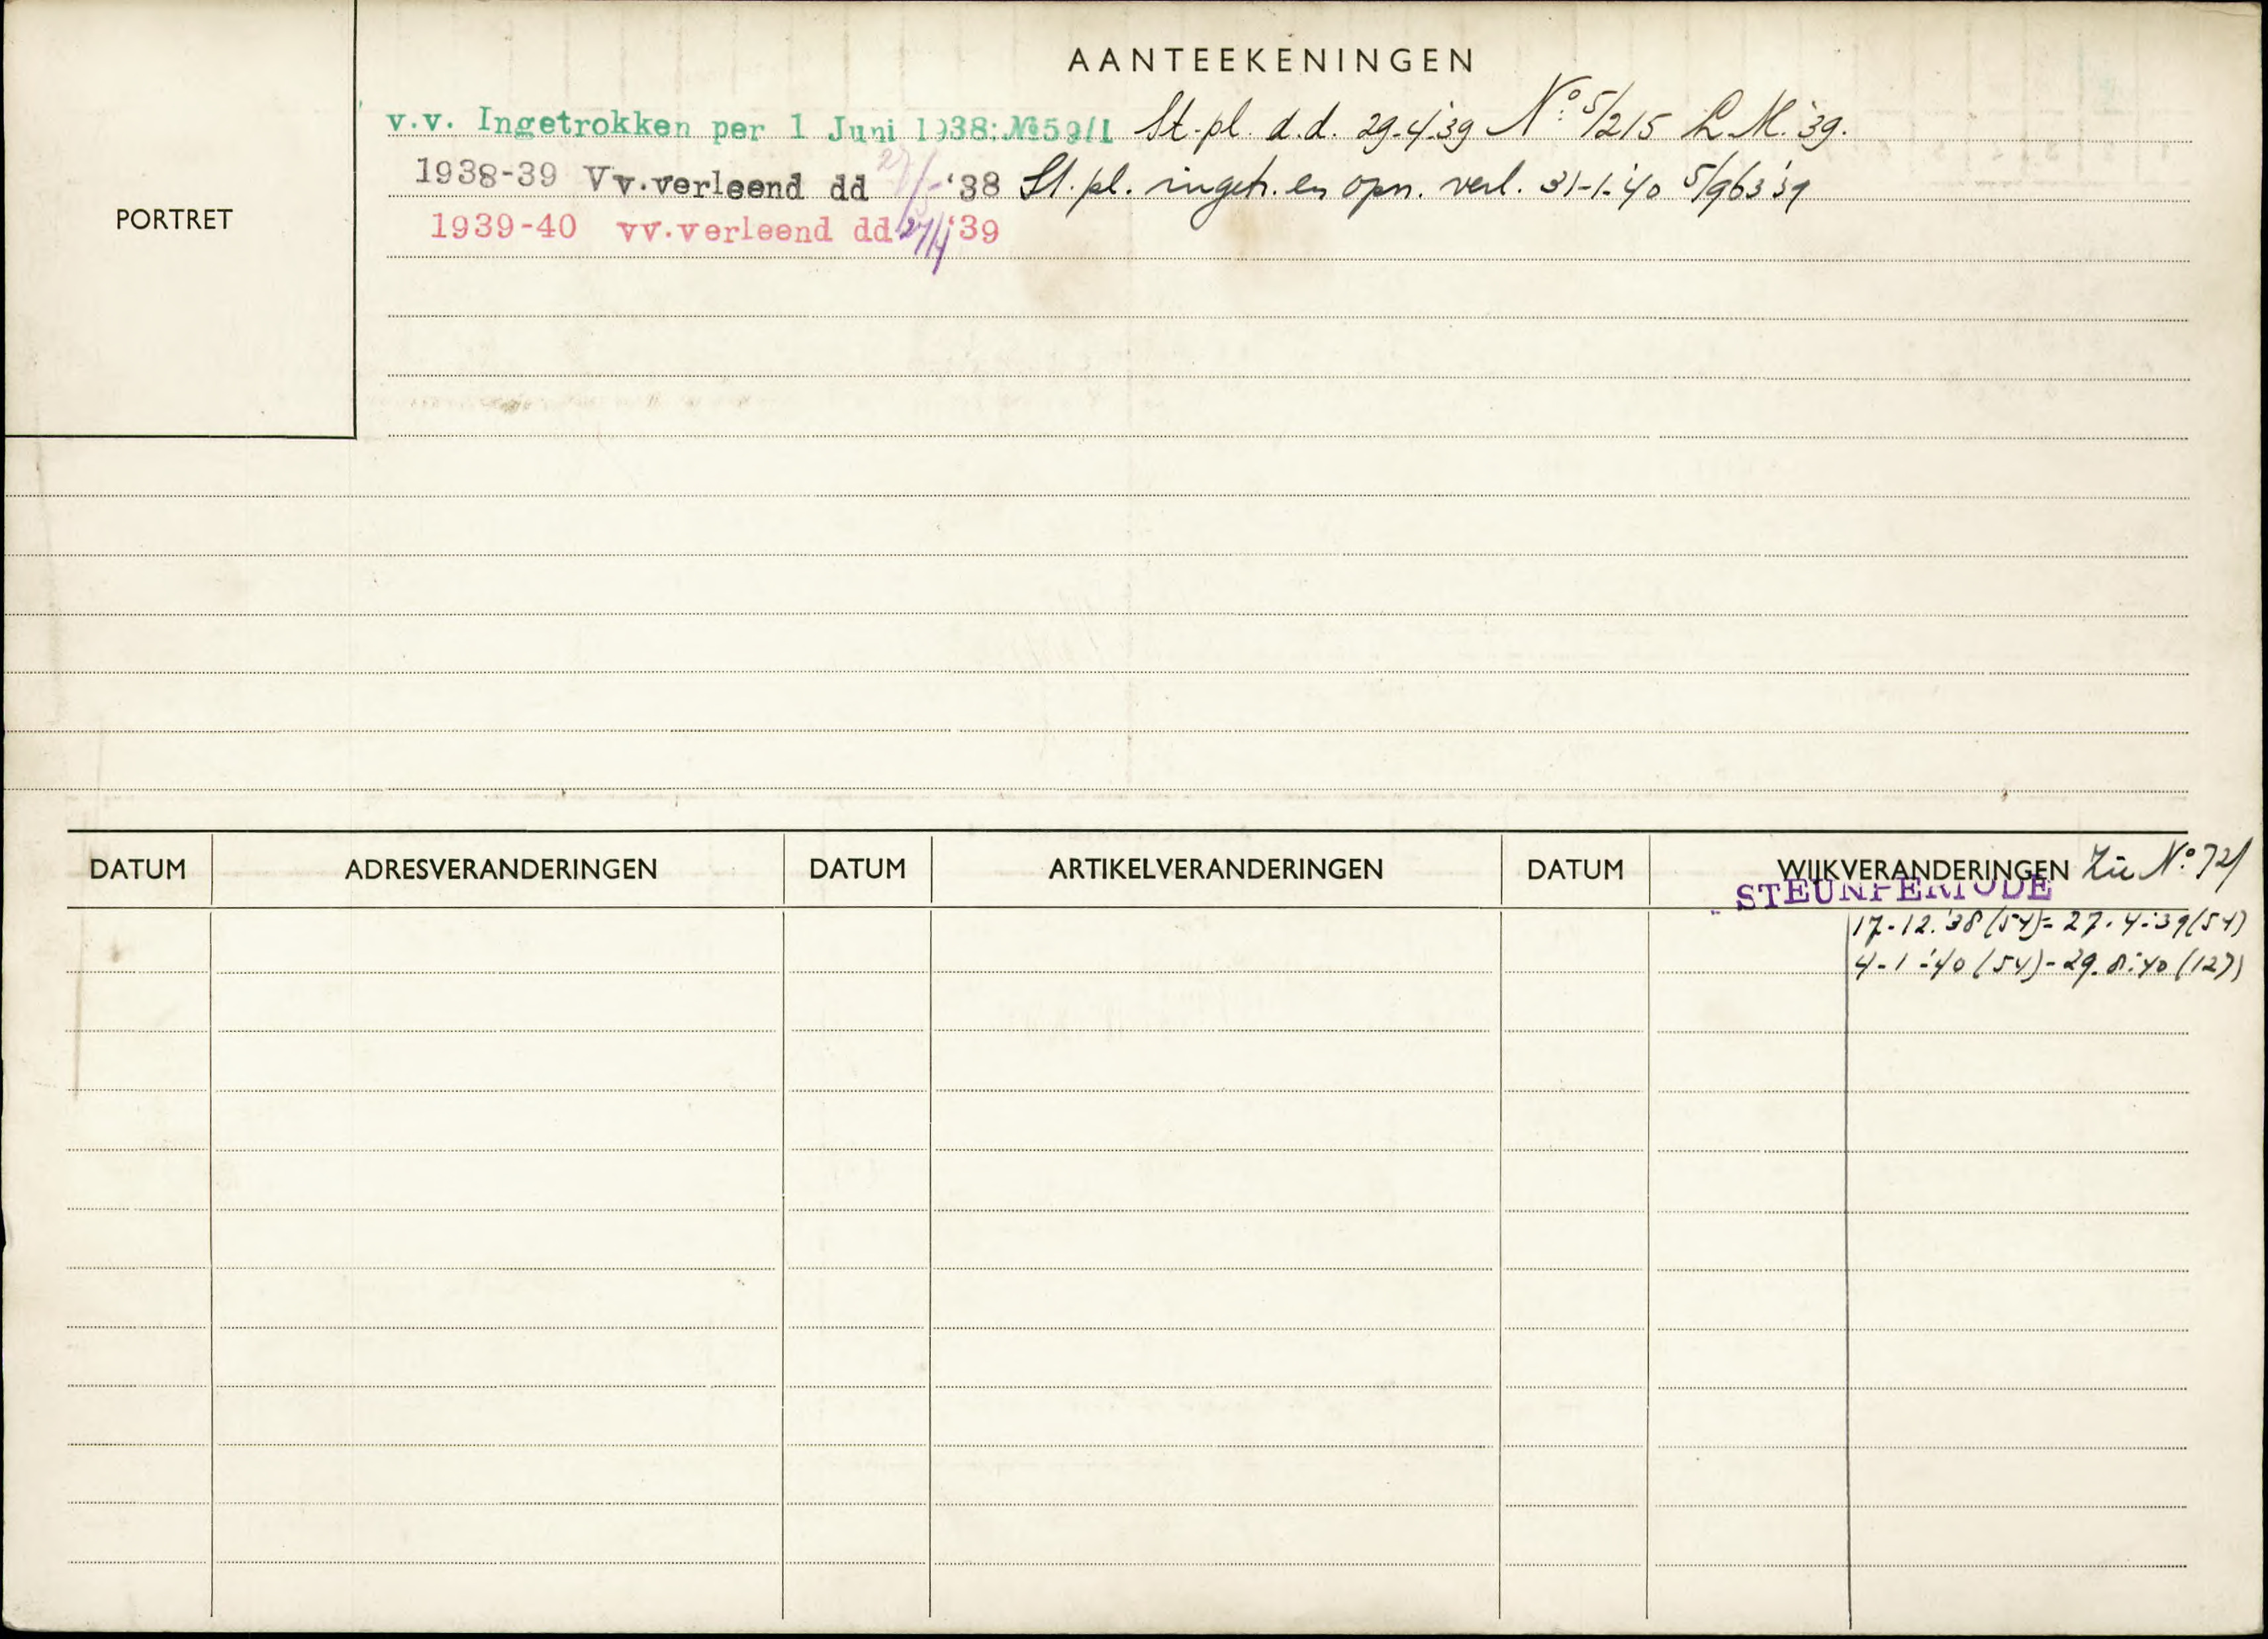 AANTEEKENINGEN
PORTRET
v.v. Ingetrokken per 1 Juni 1938: № 59/1 St. pl. d.d. 29-4-'39 N°: 5/215 L.M. '39.
1938-39 Vv.verleend dd 27/ -'38 St. pl. ingetr. en opn. verl. 31-1-'40 5/963 '39
1939-40 vv.verleend dd 27/4 '39
DATUM ADRESVERANDERINGEN DATUM ARTIKELVERANDERINGEN DATUM WIJKVERANDERINGEN Zie N° 721
STEUNPERIODE
17-12.'38 (54) - 27-4-'39 (54)
4-1-'40 (54) - 29.8.'40 (127)